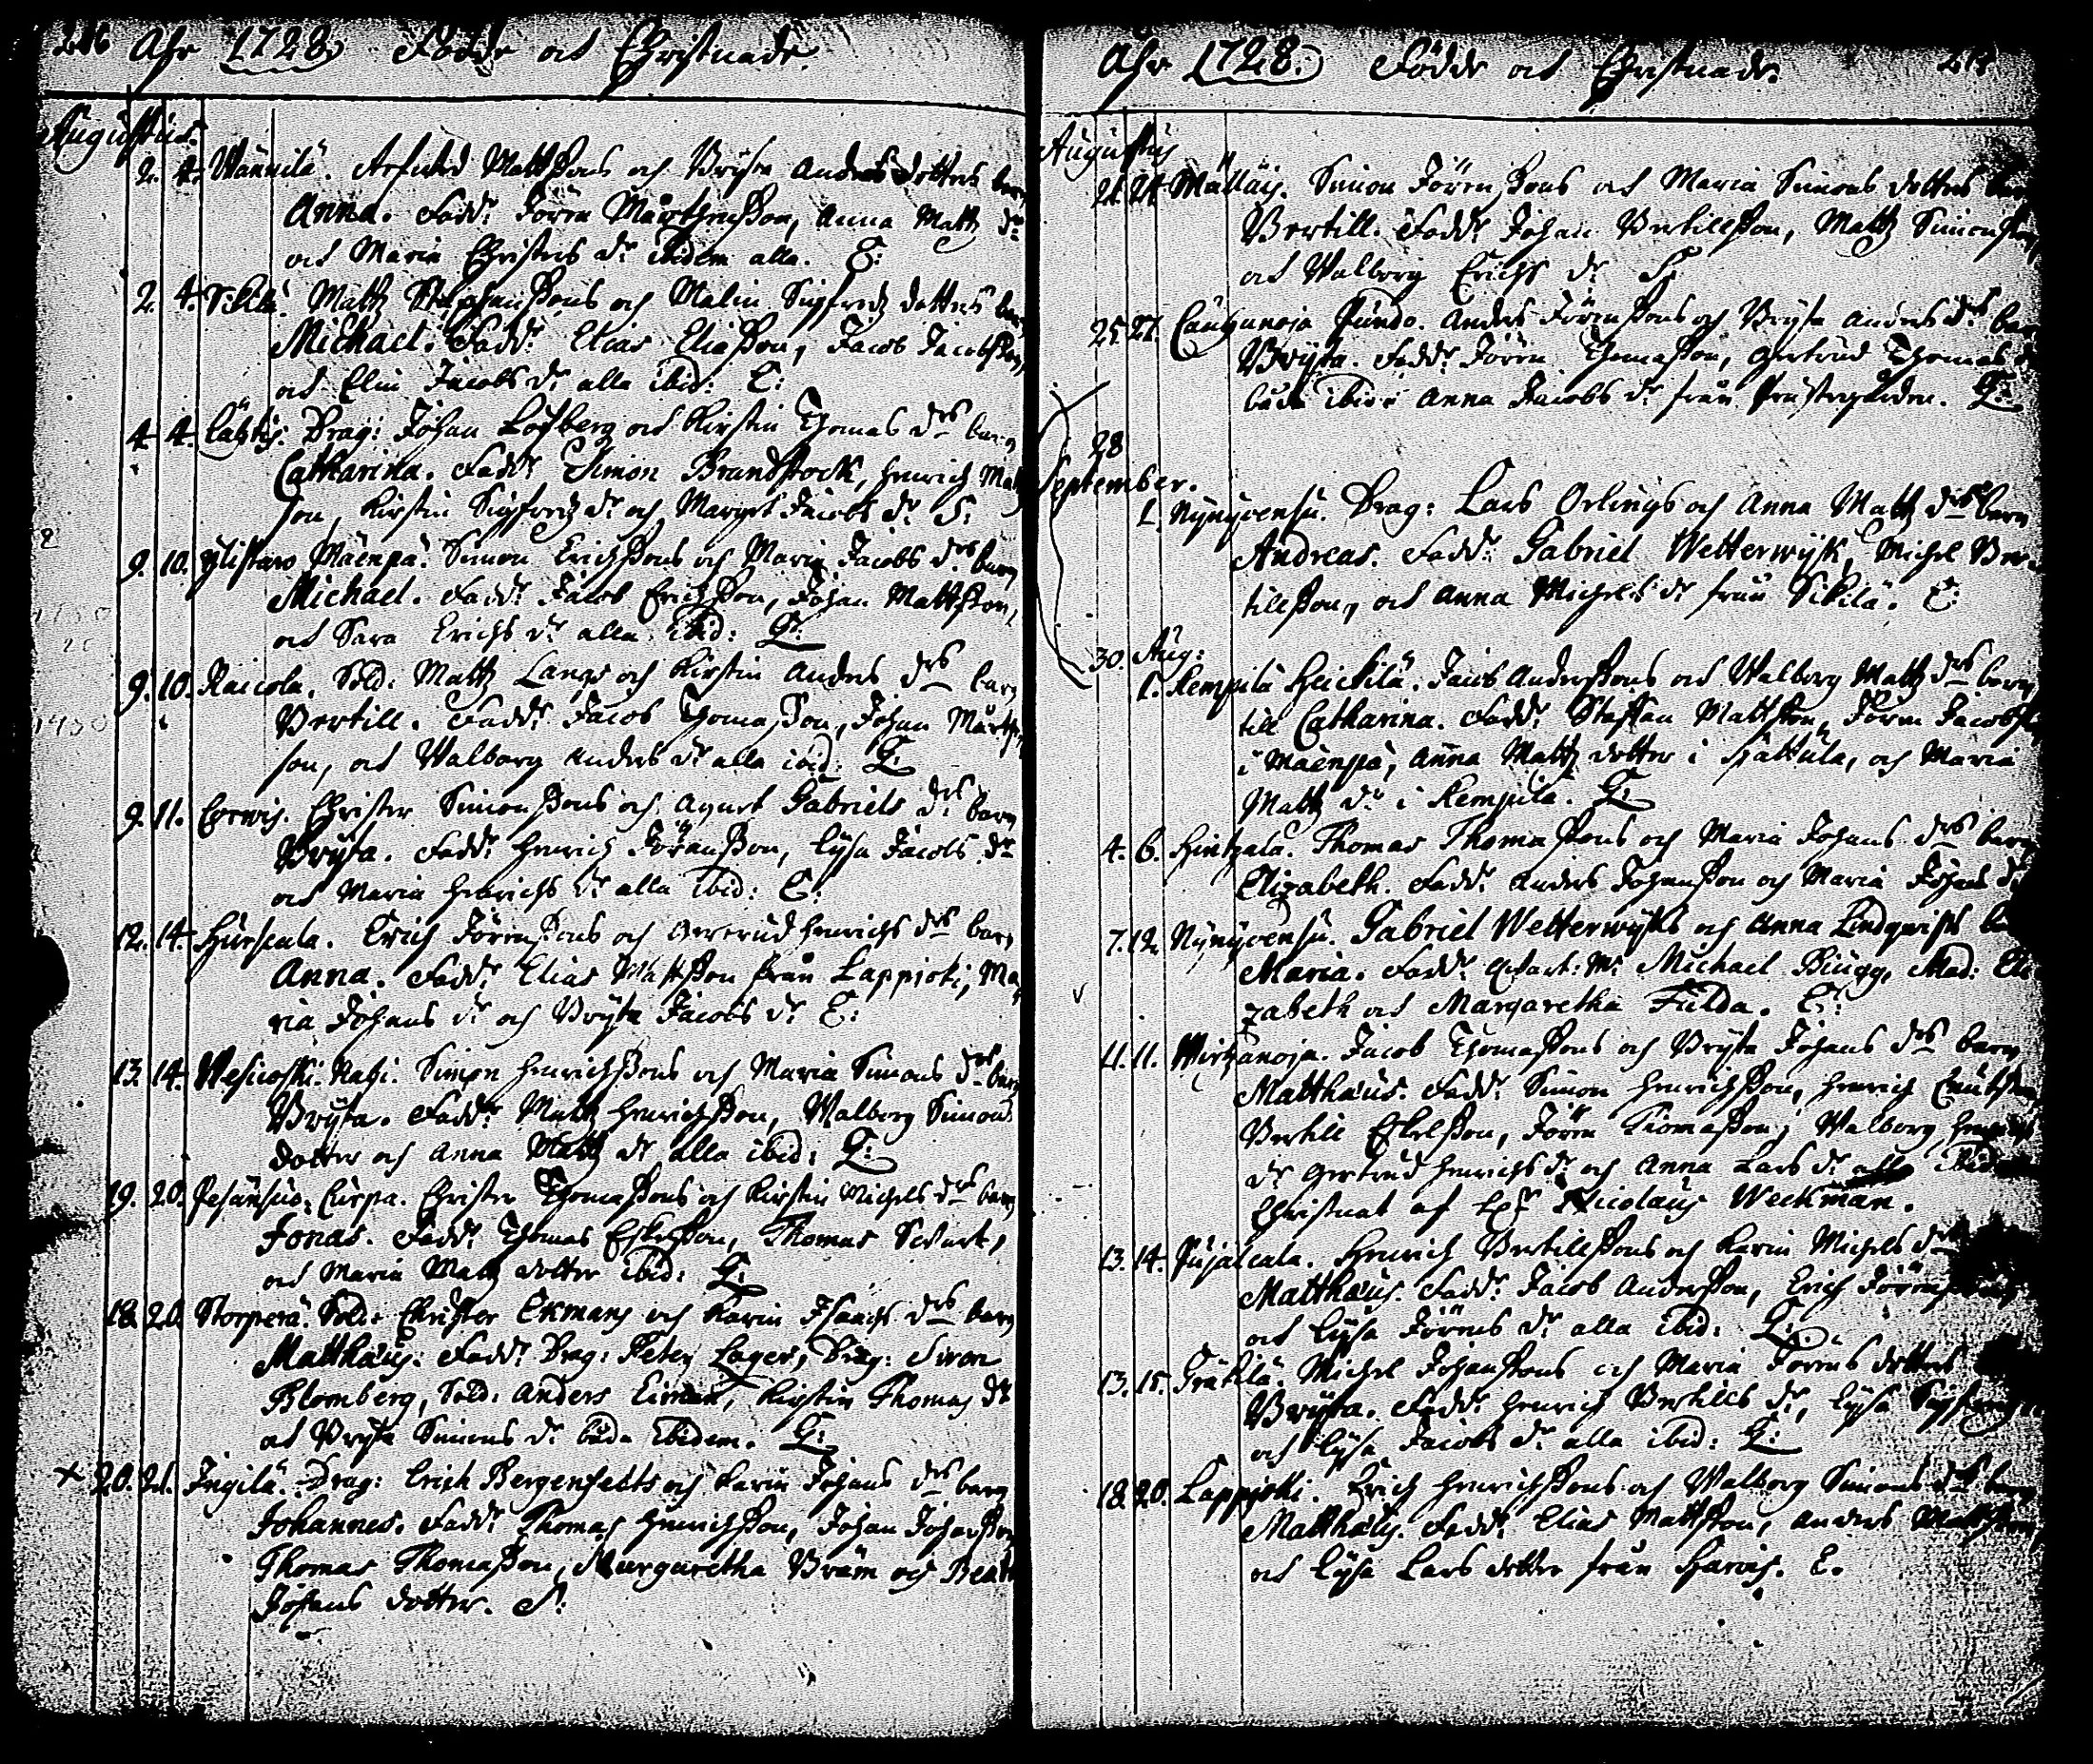 216 Åhr 1728. Födde och Christnade.
Augustus.
2. 4. Wännilä. Mattssons och Brijta Anders dotters barn
Anna. Fadd: Jören Mårthensson, Anna Matts dr
och Maria Christers dr ibidem alla. E:
2. 4. Sikilä. Matts Stephanssons och Malin Sigfreds dotters barn
Michael. Fadd: Elias Eliasson, Jacob Jacobsson,
och Elin Jacobs dr alla ibid: E:
4. 4. Drag: Johan Löfberg och Kirstin Thomas drs barn
Catharina. Fadd: Simon Brandstock, Henrich Mats
son, Kirstin Sigfreds dr och Marget Jacobs dr S:
9. 10. Ylistaro Mäenpä. Simon Erichssons och Maria Jacobs drs barn
Michael. Fadd: Jacob Erichsson, Johan Mattsson,
och Sara Erichs dr alla ibid:
9. 10. Raicola. Sold: Matts Langs och Kirstin Anders drs barn
Bertill. Fadd: Jacob Thomasson, Johan Mårthen
son, och Walborg Anders dr alla ibid:
9. 11. Christer Simonssons och Agnet Gabriels drs barn
Brijta. Fadd: Henrich Jöransson, Lijsa Jacobs dr
och Maria Henrichs dr alla ibid: E:
12. 14. Hurscala. Erich Jörenssons och Gertrud Henrichs drs barn
Anna. Fadd: Elias Mattsson från Lappjoki, Ma
ria Johans dr och Brijta Jacobs dr E:
13. 14. Wesicoski. Simon Henrichssons och Maria Simons drs barn
Brijta. Fadd: Matts Henrichsson, Walborg Simons
dotter och Anna Matts dr alla ibid:
19. 20. Pesänsuo. Christer Thomassons och Kirstin Michels drs barn
Jonas. Fadd: Thomas Eskelsson, Thomas Swart,
och Maria Matts dotter ibid:
18. 20. Storperä. Sold: Christer Ekmans och Karin Isaachs drs barn
Matthæus. Fadd: Drag: Peter Lager, Drag: Simon
Blomberg, Sold: Anders Kirstin Thomas dr
och Brijta Simons dr båda ibidem.
+ 20. 21. Ingilä. Drag: Erich Bergenfeldts och Karin Johans drs barn
Johannes. Fadd: Thomas Henrichsson, Johan Johansson
Thomas Thomasson, Margaretha Bräm och Beata
Johans dotter. S:
Åhr 1728. Födde och Christnade.
Augustus
21. 24. Mälläis. Simon Jörenssons och Maria Simons dotters barn
Bertill. Fadd: Johan Bertillsson, Matts Simonsson,
och Walborg Erichs dr S:
25. 27. Anders Jörenssons och Brijta Anders drs barn
Brijta. Fadd: Jören Thomasson, Gertrud Thomas dr
båda ibid: Anna Jacobs dr från Prästegården.
28
September.
1. Nynyoensu. Drag: Lars Orlings och Anna Matts drs barn
Andreas. Fadd: Gabriel Wetterwijk, Michel Ber-
tillsson, och Anna Michels dr från Sikilä. E:
30. Aug:
1. Kempilä Heickilä. Jacob Anderssons och Walborg Matts drs barn
till Catharina. Fadd: Staffan Mattsson, Jören Jacobsson
i Mäenpä, Anna Matts dotter i Hattula, och Maria
Matts dr i Kempilä.
4. 6. Thomas Thomassons och Maria Johans drs barn
Elizabeth. Fadd: Anders Johansson och Maria Johans dr
7. 12. Nynyoensu. Gabriel Wetterwijks och Anna Lindqwists barn
Maria. Fadd: Michael Biugg, Mad: Eli
zabeth och Margaretha Fulda. E:
11. 11. Wirtzanoja. Jacob Thomassons och Brijta Johans drs barn
Matthæus. Fadd: Simon Henrichsson, Henrich Knutsson
Bertill Eskelsson, Jören Thomasson, Walborg Henrichs
dr Gertrud Henrichs dr och Anna Lars dr alla ibid
Christnat af Nicolaus Weckman.
13. 14. Pujalcala. Henrich Bertillssons och Karin Michels drs
Matthæus. Fadd: Jacob Andersson, Erich Jörensson,
och Lijsa Jörens dr alla ibid:
13. 15. Michel Johanssons och Maria Jörens dotters
Brijta. Fadd: Henrich Bertills dr, Lijsa Sigfreds
och Lijsa Jacobs dr alla ibid:
18. 20. Lappjoki. Erich Henrichssons och Walborg Simons drs barn
Matthæus. Fadd: Elias Mattsson, Anders Mattsson,
och Lijsa Lars dotter från E.